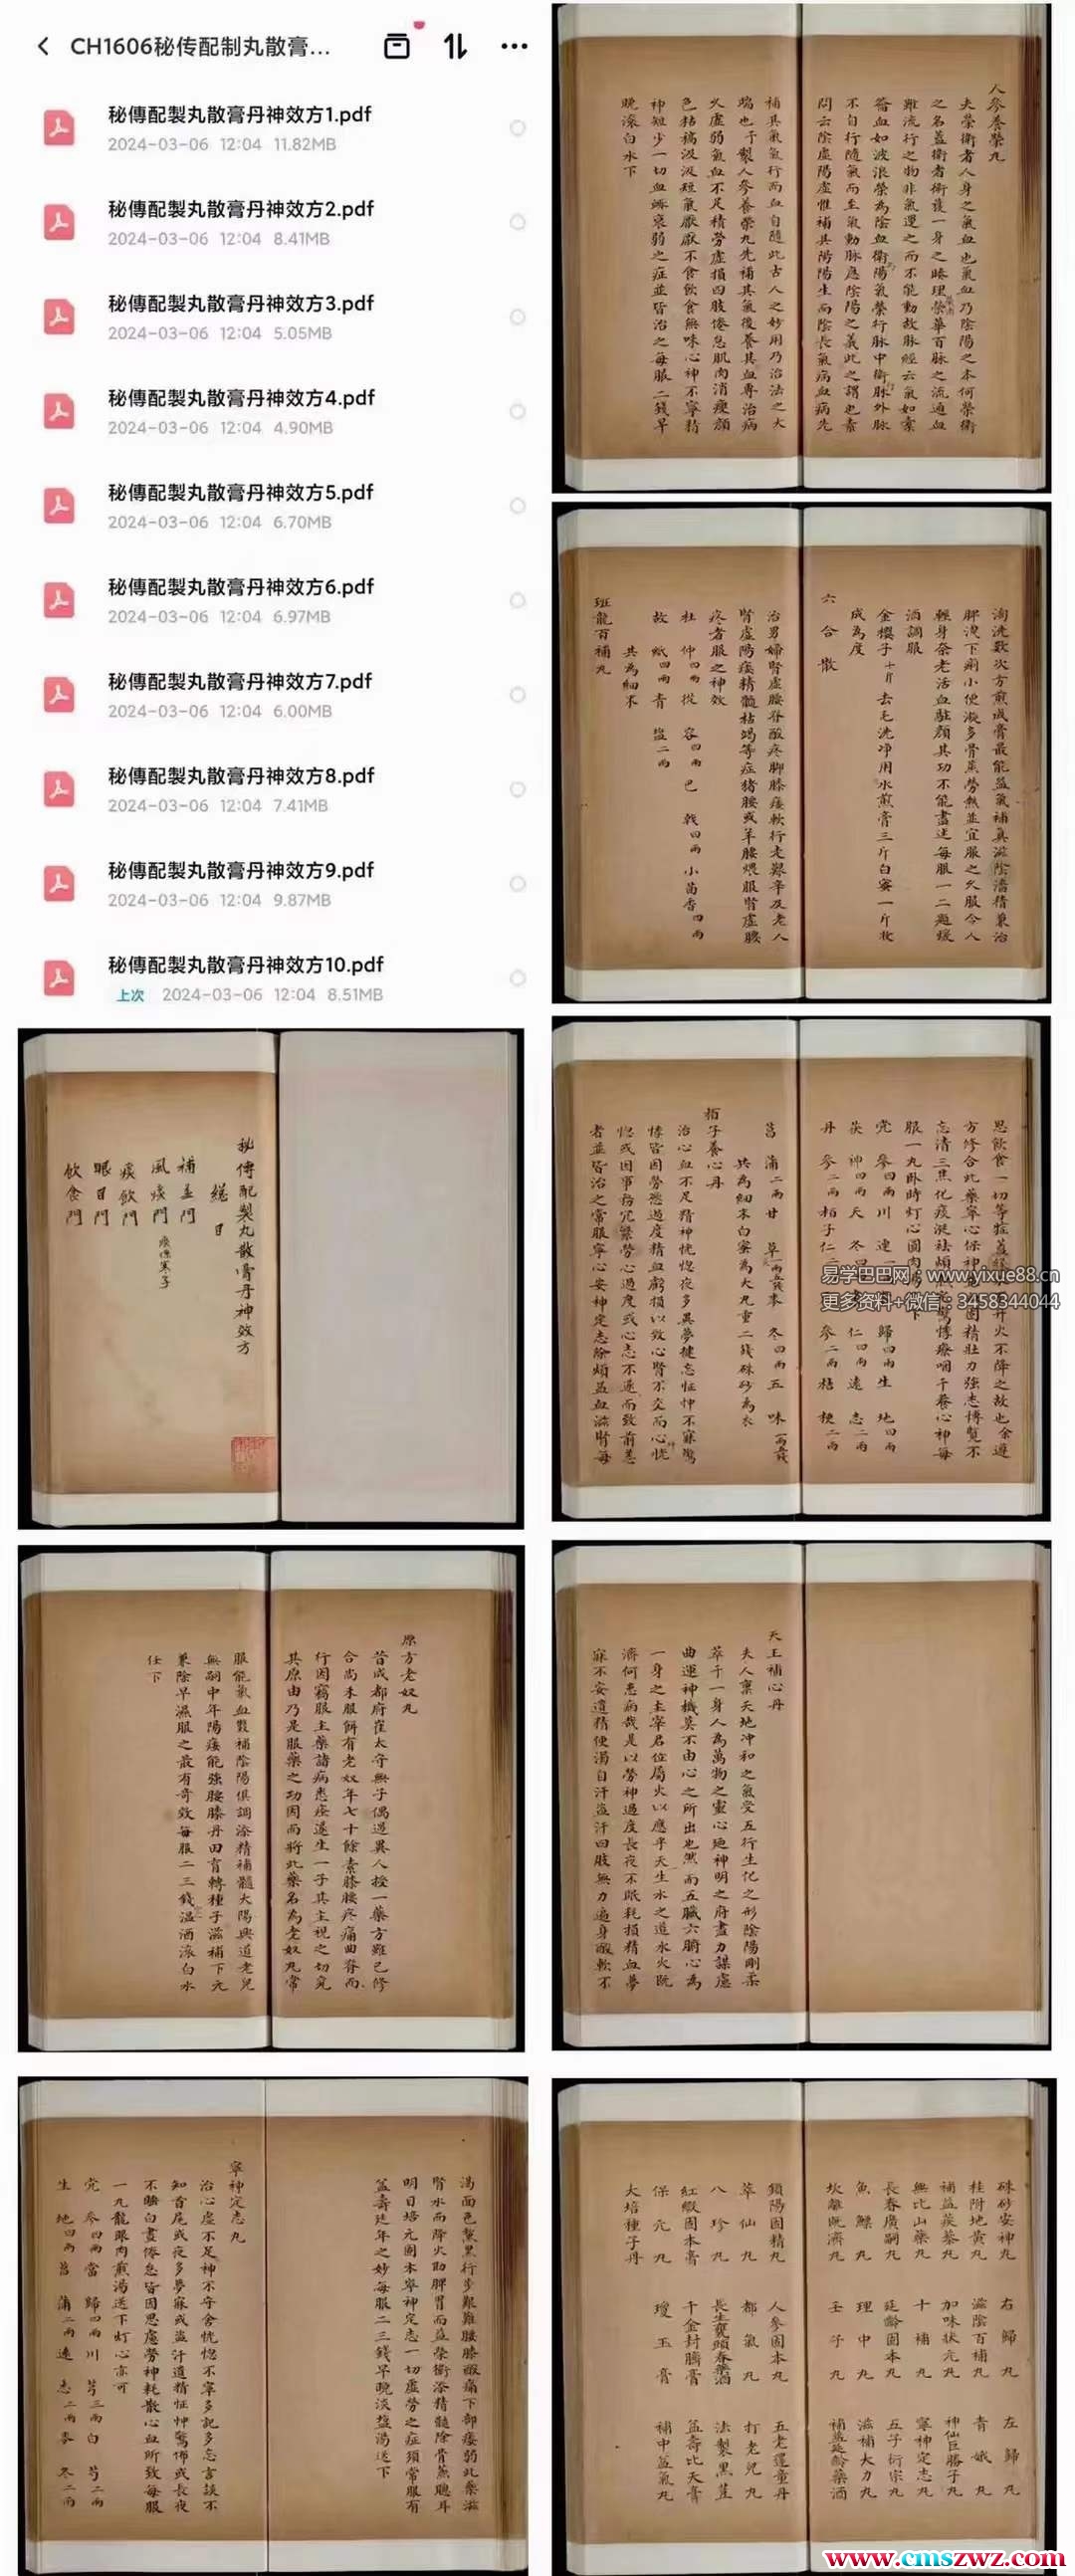 CH1606秘传配制丸散膏...
秘傳配製丸散膏丹神效方1.pdf
2024-03-06 12:04 11.82MB
秘傳配製丸散膏丹神效方2.pdf
2024-03-06 12:04 8.41MB
秘傳配製丸散膏丹神效方3.pdf
2024-03-06 12:04 5.05MB
秘傳配製丸散膏丹神效方4.pdf
2024-03-06 12:04 4.90MB
秘傳配製丸散膏丹神效方5.pdf
2024-03-06 12:04 6.70MB
秘傳配製丸散膏丹神效方6.pdf
2024-03-06 12:04 6.97MB
秘傳配製丸散膏丹神效方7.pdf
2024-03-06 12:04 6.00MB
秘傳配製丸散膏丹神效方8.pdf
2024-03-06 12:04 7.41MB
秘傳配製丸散膏丹神效方9.pdf
2024-03-06 12:04 9.87MB
秘傳配製丸散膏丹神效方10.pdf
上次 2024-03-06 12:04 8.51MB
人參養榮丸
夫榮衛者人身之氣血也氣血乃陰陽之本何榮衛
之名蓋衛者衛護一身之腠理榮華百脉之流通血
雖流行之物非氣運之而不能動故脉經云氣如橐
籥血如波浪榮為陰血衛陽氣榮行脉中衛脉外脉
不自行隨氣而至氣動脉應陰陽之義此之謂也素
問云陰虛陽虛惟補其陽陽生而陰長氣病血病先
補其氣氣行而血自隨此古人之妙用乃治法之大
端也予製人參養榮丸先補其氣後養其血專治病
久虛弱氣血不足精勞虛損四肢倦怠肌肉消瘦顏
色枯槁汲汲短氣厭厭不食飲食無味心神不寧精
神短少一切血衰弱之症並皆治之每服二錢早
晚滚白水下
淘洗數次方煎成膏最能益氣補真滋陰濇精兼治
脾洩下痢小便澁多骨蒸勞熱並宜服之久服令人
輕身奈老活血駐顏其功不能盡述每服一二匙緩
酒調服
金櫻子十斤 去毛洗净用水煎膏三斤白蜜一斤收
成為度
六合散
治男婦腎虛腰脊酸疼脚膝痿軟行走艱辛及老人
腎虛陽痿精髓枯竭等症猪腰或羊腰煨服腎虛腰
疼者服之神效
杜仲四兩 從容四兩 巴戟四兩 小茴香四兩
故紙四兩 青塩二兩
共為細末
班龍百補丸
秘傳配製丸散膏丹神效方
總目
補益門
風痰門
痰飲門
眼目門
飲食門
思飲食一切等症
方修合此藥寧心保神固精壯力強志博覽不
服一丸卧時灯心圓肉
党參四兩 川連 歸四兩 生地四兩
茯神四兩 天冬四 仁四兩 遠志二兩
丹參二兩 柏子仁二 參二兩 桔梗二兩
菖蒲二兩 甘草一兩五錢 麥冬四兩 五味一兩五錢
共為細末白蜜為大丸重二錢硃砂為衣
栢子養心丹
治心血不足精神恍惚夜多異夢健忘怔忡不寐驚
悸皆因勞慾過度精血虧損以致心腎不交而心恍
惚或因事務冗繁勞心過度或心志不遂而致前恙
者並皆治之常服寧心安神定志除煩益血滋腎每
易学巴巴网：www.yixue88.cn
更多资料+微信：3458344044
原方老奴丸
昔成都府崔太守無子偶遇異人授一藥方雖已修
合尚未服餌有老奴年七十餘素膝腰疼痛曲脊而
行因竊服主藥諸病悉痊遂生一子其主視之切究
其原由乃是服藥之功因而將此藥名為老奴丸常
服能氣血製補陰陽俱調添精補髓太陽興道老兒
無嗣中年陽痿能強腰膝丹田育轉種子滋補下元
兼除早濕服之最有奇效每服二三錢温酒滚白水
任下
天王補心丹
夫人稟天地冲和之氣受五行生化之形陰陽剛柔
萃于一身人為萬物之靈心廼神明之府盡力謀慮
曲運神機莫不由心之所出也然而五臟六腑心為
一身之主宰君位屬火以應乎天生水之道水火既
濟何患病哉是以勞神過度長夜不眠耗損精血夢
寐不安遺精便濁自汗盗汗四肢無力遍身酸軟不
渴面色黧黑行步艱難腰膝酸痛下部痿弱此藥滋
腎水而降火助脾胃而益榮衛添精髓除骨蒸聰耳
明目培元固本寧神定志一切虛勞之症須常服有
益壽延年之妙每服二三錢早晚淡塩湯送下
寧神定志丸
治心虛不足神不守舍恍惚不寧多記多忘言談不
知首尾或夜多夢寐或盗汗遺精怔忡驚悸或長夜
不睡白晝倦怠皆因思慮勞神耗散心血所致每服
一丸龍眼肉煎湯送下灯心亦可
党參四兩 當歸四兩 川芎三兩 白芍二兩
生地四兩 菖蒲二兩 遠志二兩 麥冬二兩
硃砂安神丸 右歸丸 左歸丸
桂附地黃丸 滋陰百補丸 青娥丸
補益蒺藜丸 加味狀元丸 神仙巨勝子丸
無比山藥丸 十補丸 寧神定志丸
長春廣嗣丸 延齡固本丸 五子衍宗丸
魚鰾丸 理中丸 滋補大力丸
坎離既濟丸 壬子丸 補益延齡藥酒
鎖陽固精丸 人參固本丸 五老還童丹
萃仙丸 都氣丸 打老兒丸
八珍丸 長生甕頭春藥酒 法製黑荳
紅緞固本膏 千金封臍膏 益壽比天膏
保元丸 瓊玉膏 補中益氣丸
大培種子丹
www.cmszwz.com